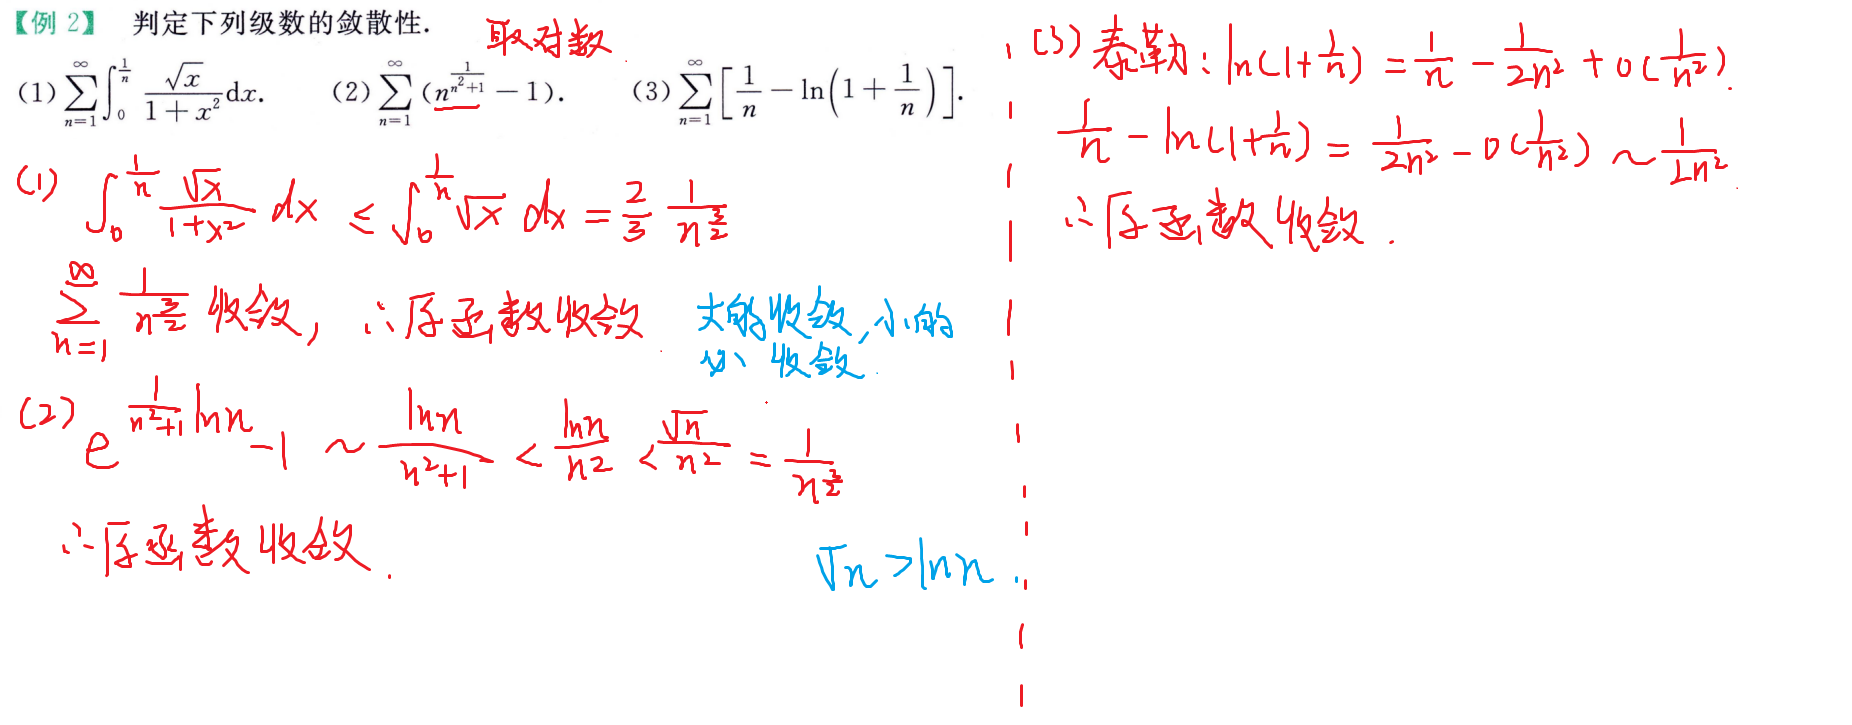 【例 2】 判定下列级数的敛散性.
取对数
(1) \sum_{n=1}^{\infty}\int_0^{\frac{1}{n}}\frac{\sqrt{x}}{1+x^2}dx. (2) \sum_{n=1}^{\infty}(n^{\frac{1}{n^2+1}}-1). (3) \sum_{n=1}^{\infty}\left[\frac{1}{n}-\ln\left(1+\frac{1}{n}\right)\right].
(1) \int_0^{\frac{1}{n}}\frac{\sqrt{x}}{1+x^2}dx \le \int_0^{\frac{1}{n}}\sqrt{x}dx = \frac{2}{3}\frac{1}{n^{\frac{3}{2}}}
\sum_{n=1}^{\infty}\frac{1}{n^{\frac{3}{2}}} 收敛, ∴原函数收敛
大的收敛,小的
必收敛.
(2) e^{\frac{1}{n^2+1}\ln n}-1 \sim \frac{\ln n}{n^2+1} < \frac{\ln n}{n^2} < \frac{\sqrt{n}}{n^2} = \frac{1}{n^{\frac{3}{2}}}
∴原函数收敛.
\sqrt{n} > \ln n.
(3) 泰勒: \ln(1+\frac{1}{n}) = \frac{1}{n}-\frac{1}{2n^2}+o(\frac{1}{n^2}).
\frac{1}{n}-\ln(1+\frac{1}{n}) = \frac{1}{2n^2}-o(\frac{1}{n^2}) \sim \frac{1}{2n^2}.
∴原函数收敛.